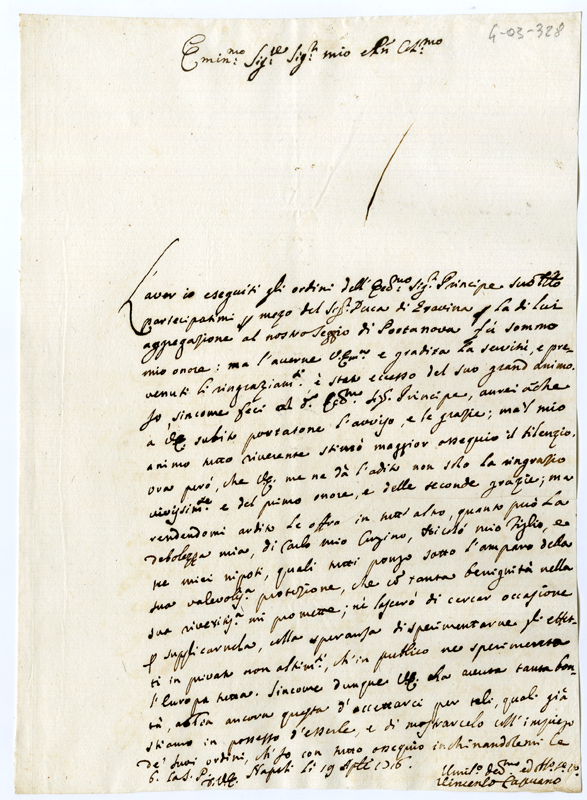 4-03-328
Emin:mo Sig:re Sig:r mio
L'aver io eseguiti gli ordini dell' Ecc:mo Sig:r Principe suo
partecipatimi p mezo del Sig:r Duca di Gravina p la di lui
aggregazione al nostro Seggio di Portanova fù sommo
mio onore: ma l'averne V.Em:za e gradita la servitù, e pre-
venuti li ringraziam:ti è stato eccesso del suo grand'animo.
Io, sincome feci al d:o Ecc:mo Sig:r Principe, aurei anche
a V.E. subito portatone l'avviso, e le grazie; ma'l mio
animo tutto riverente stimò maggior ossequio il silenzio.
Ora però, che V.E. me ne dà l'adito non solo la ringrazio
vivissim:te e del primo onore, e delle seconde grazie; ma
rendendomi ardito le offro in tutt'altro, quanto può la
debolezza mia, di Carlo mio Cugino, Nicolò mio figlio, e
tre miei nipoti, quali tutti pongo sotto l'amparo della
sua valevoliss:a protezione, che cō tanta benignità nella
sua riveritiss:a mi promette; nè lascerò di cercar occasione
p supplicarnela, colla speranza di sperimentarne gli effet-
ti in privato non altrim:ti, ch'in publico ne sperimenta
l'Europa tutta. Sincome dunque V.E. ha avuta tanta bon-
tà, abbia ancora questa d'accettarci per tali, quali già
stiamo in possesso d'esserle, e di mostrarcelo coll'impiego
de' suoi ordini, ch'io con tutto ossequio inchinandolemi le
b. la S. P.
D.V.E. Napoli li 19 1716.
Umiliss:o dev:mo ed obl:mo
Vincenzo Capuano